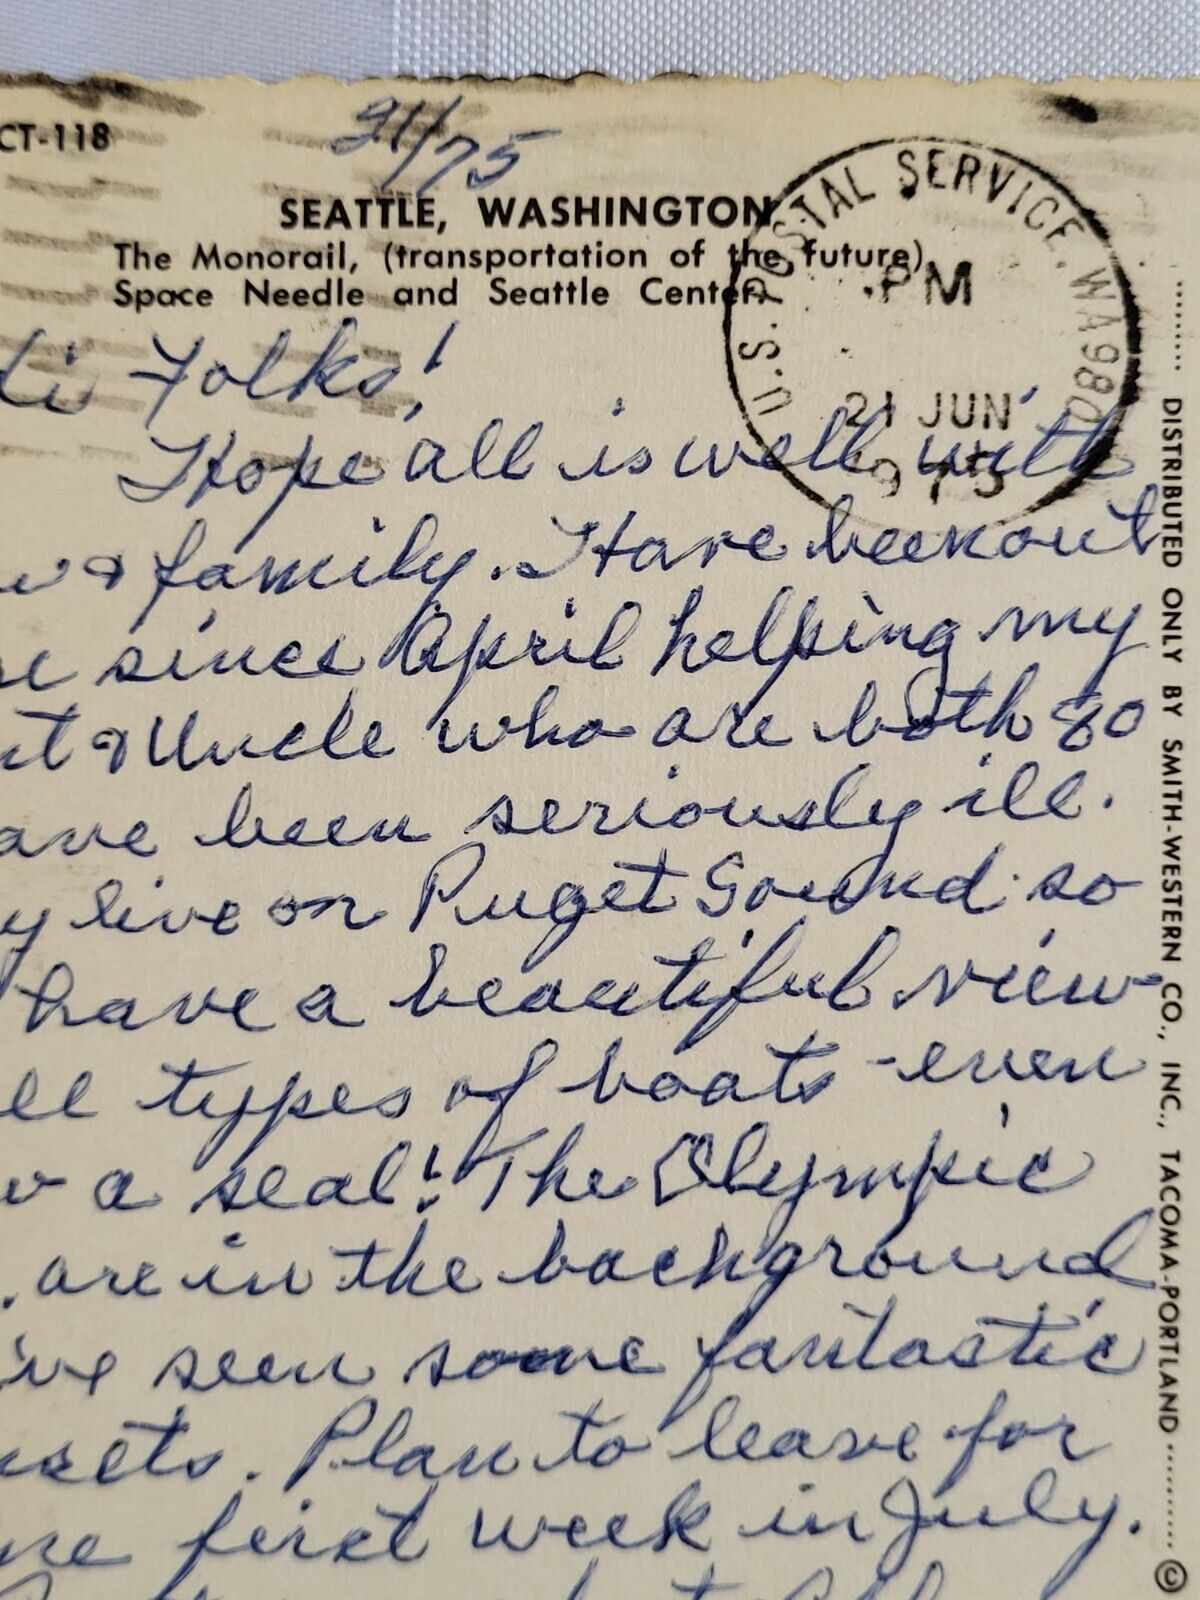 CT-118
21/75
SEATTLE, WASHINGTON
The Monorail, (transportation of the future),
Space Needle and Seattle Center.
U.S. POSTAL SERVICE. WA980
PM
21 JUN
1975
Hi Folks!
Hope all is well with
& family. Have been out
since April helping my
& Uncle who are both 80
have been seriously ill.
live on Puget Sound so
have a beautiful view
types of boats - even
a seal! The Olympic
are in the background
seen some fantastic
sets. Plan to leave for
first week in July.
DISTRIBUTED ONLY BY SMITH-WESTERN CO., INC., TACOMA-PORTLAND
©